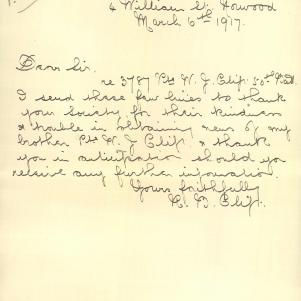 4 William St. Norwood
March 6th 1917.
Dear Sir.
re 3787 Pte W. J. Clift. 50th Batt.
I send these few lines to thank
your Society for their kindness
& trouble in obtaining news of my
brother Pte W. J. Clift. & thank
you in anticipation should you
receive any further information.
Yours faithfully
B. Clift.